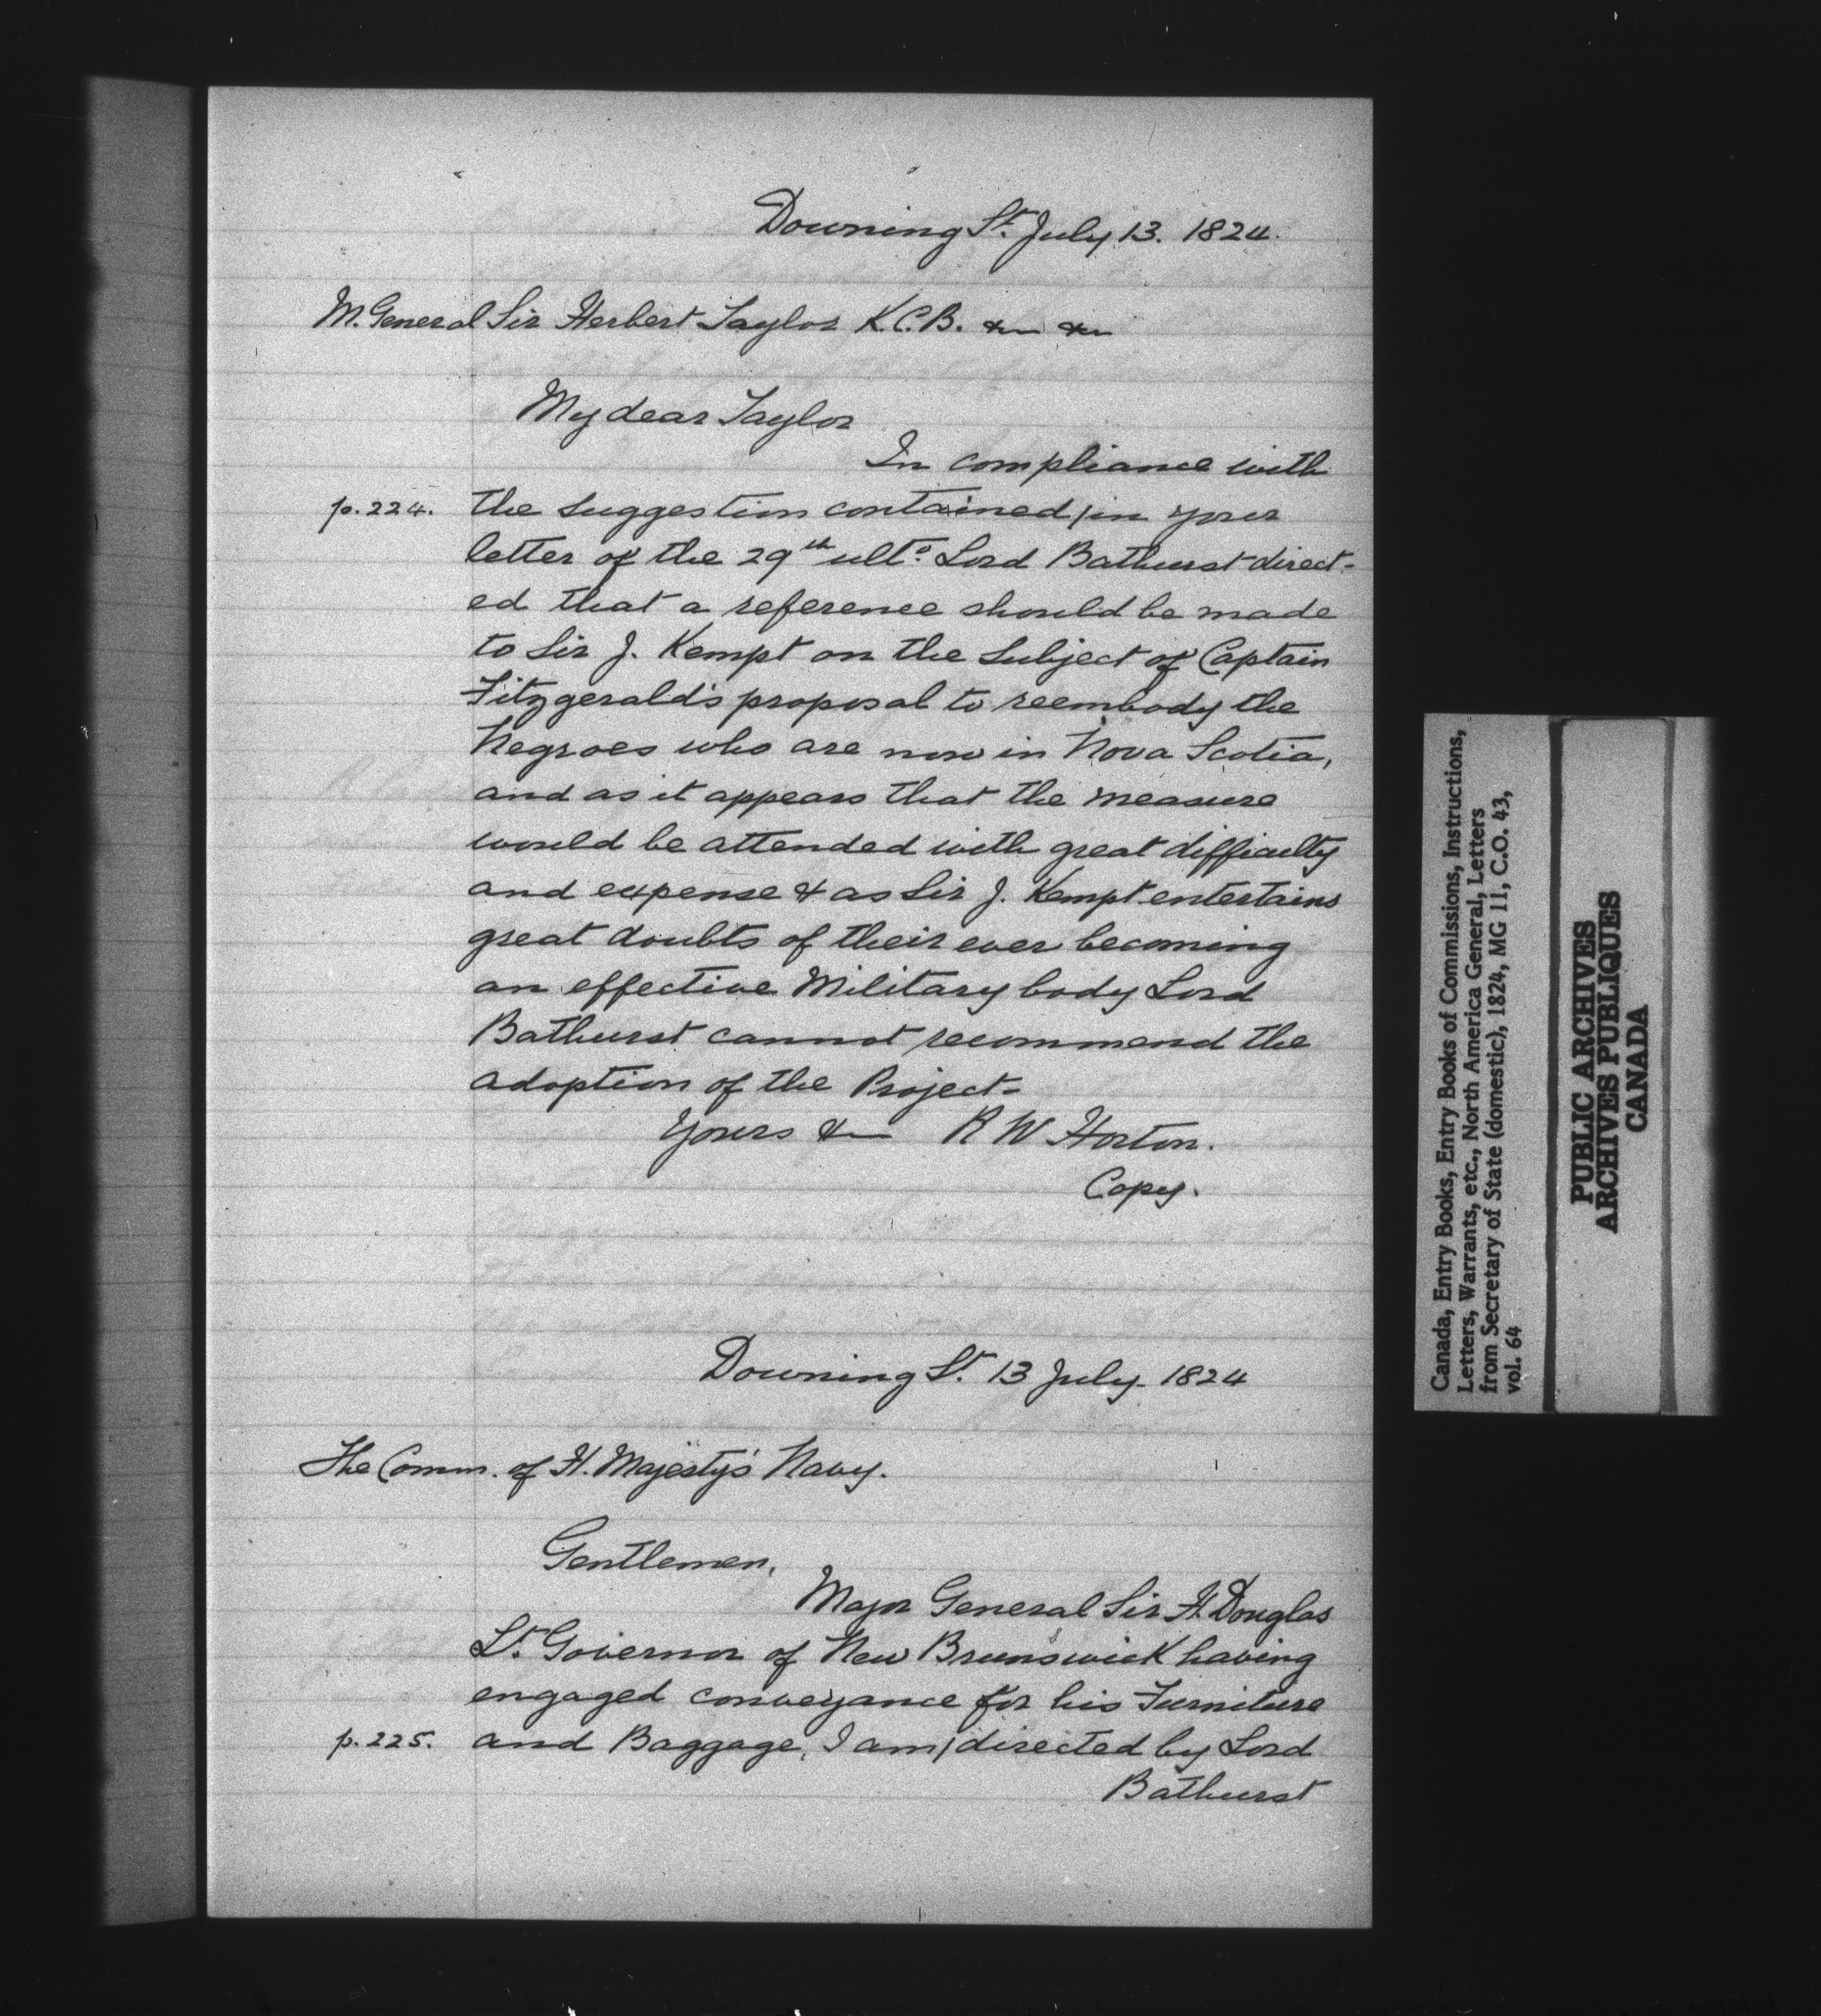 Downing St. July 13. 1824.
M. General Sir Herbert Taylor K.C.B. &c &c
My dear Taylor
In compliance with
p. 224. the suggestion contained / in your
letter of the 29th ulto. Lord Bathurst direct-
ed that a reference should be made
to Sir J. Kempt on the subject of Captain
Fitzgerald's proposal to reembody the
Negroes who are now in Nova Scotia,
and as it appears that the measure
would be attended with great difficulty
and expense & as Sir J. Kempt entertains
great doubts of their ever becoming
an effective Military body Lord
Bathurst cannot recommend the
adoption of the Project-
Yours &c R W Horton.
Copy.
Downing St. 13 July. 1824
The Comm. of H. Majesty's Navy.
Gentlemen,
Major General Sir H. Douglas
Lt. Governor of New Brunswick having
engaged conveyance for his Furniture
p. 225. and Baggage, I am / directed by Lord
Bathurst
Canada, Entry Books, Entry Books of Commissions, Instructions,
Letters, Warrants, etc., North America General, Letters
from Secretary of State (domestic), 1824, MG 11, C.O. 43,
vol. 64
PUBLIC ARCHIVES
ARCHIVES PUBLIQUES
CANADA